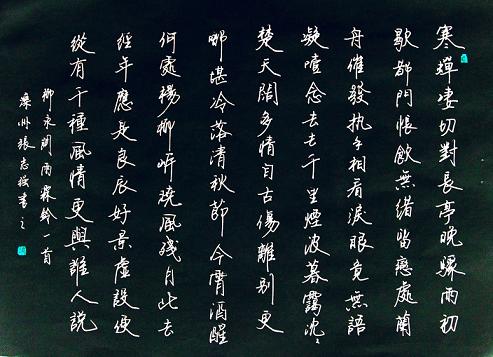 寒蟬凄切對長亭晚驟雨初
歇都門悵飲無緒留戀處蘭
舟催發执手相看淚眼竟無語
凝噎念去去千里煙波暮靄沈〻
楚天闊多情自古傷離別更
哪堪冷落清秋節今宵酒醒
何處楊柳岸曉風殘月此去
經年應是良辰好景虛設便
從有千種風情更與誰人說
柳永詞雨霖鈴一首
張志書之